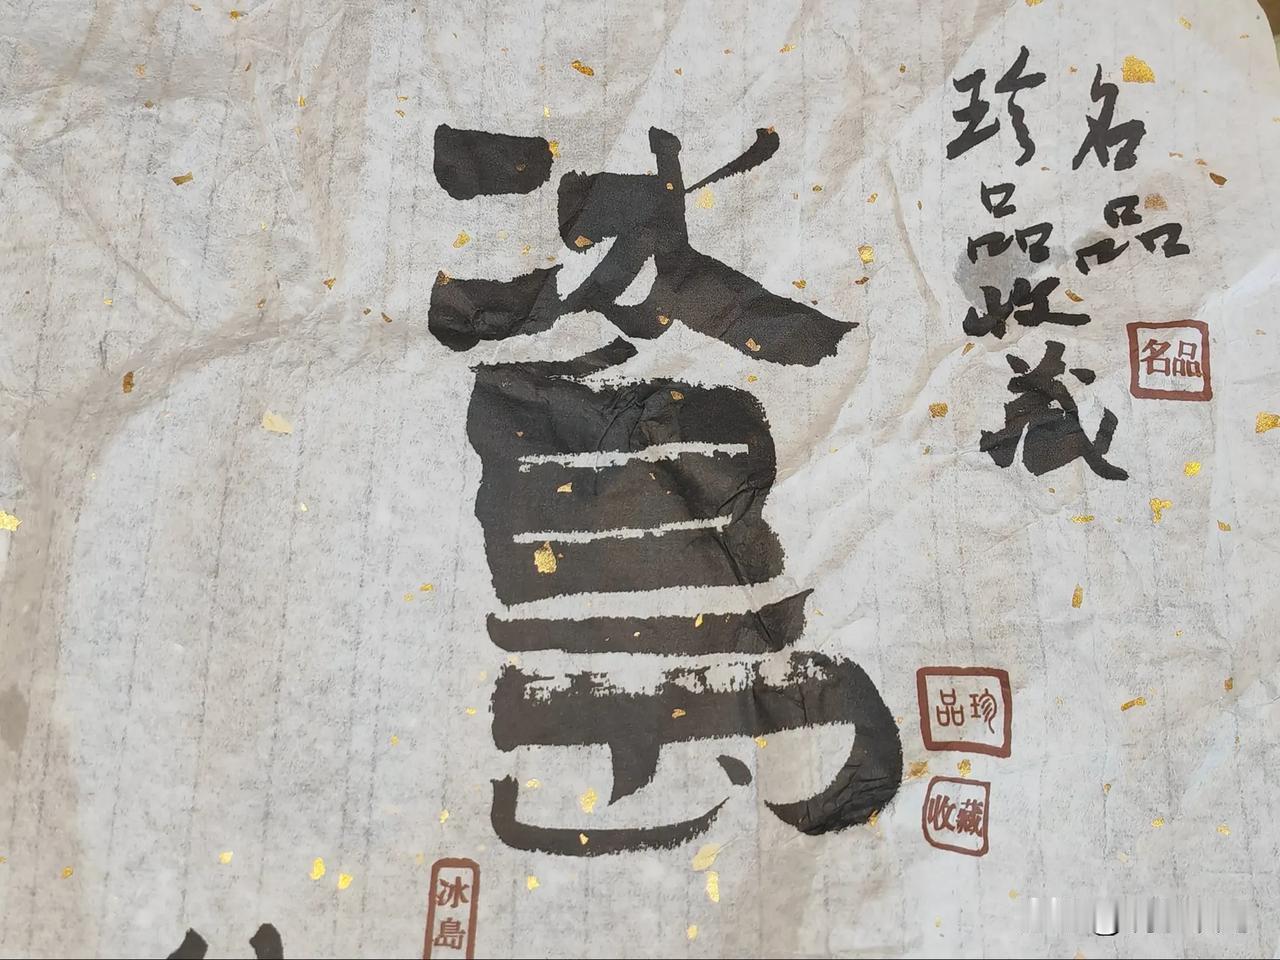 名品
珍品收藏
名品
冰島
珍品
收藏
冰島